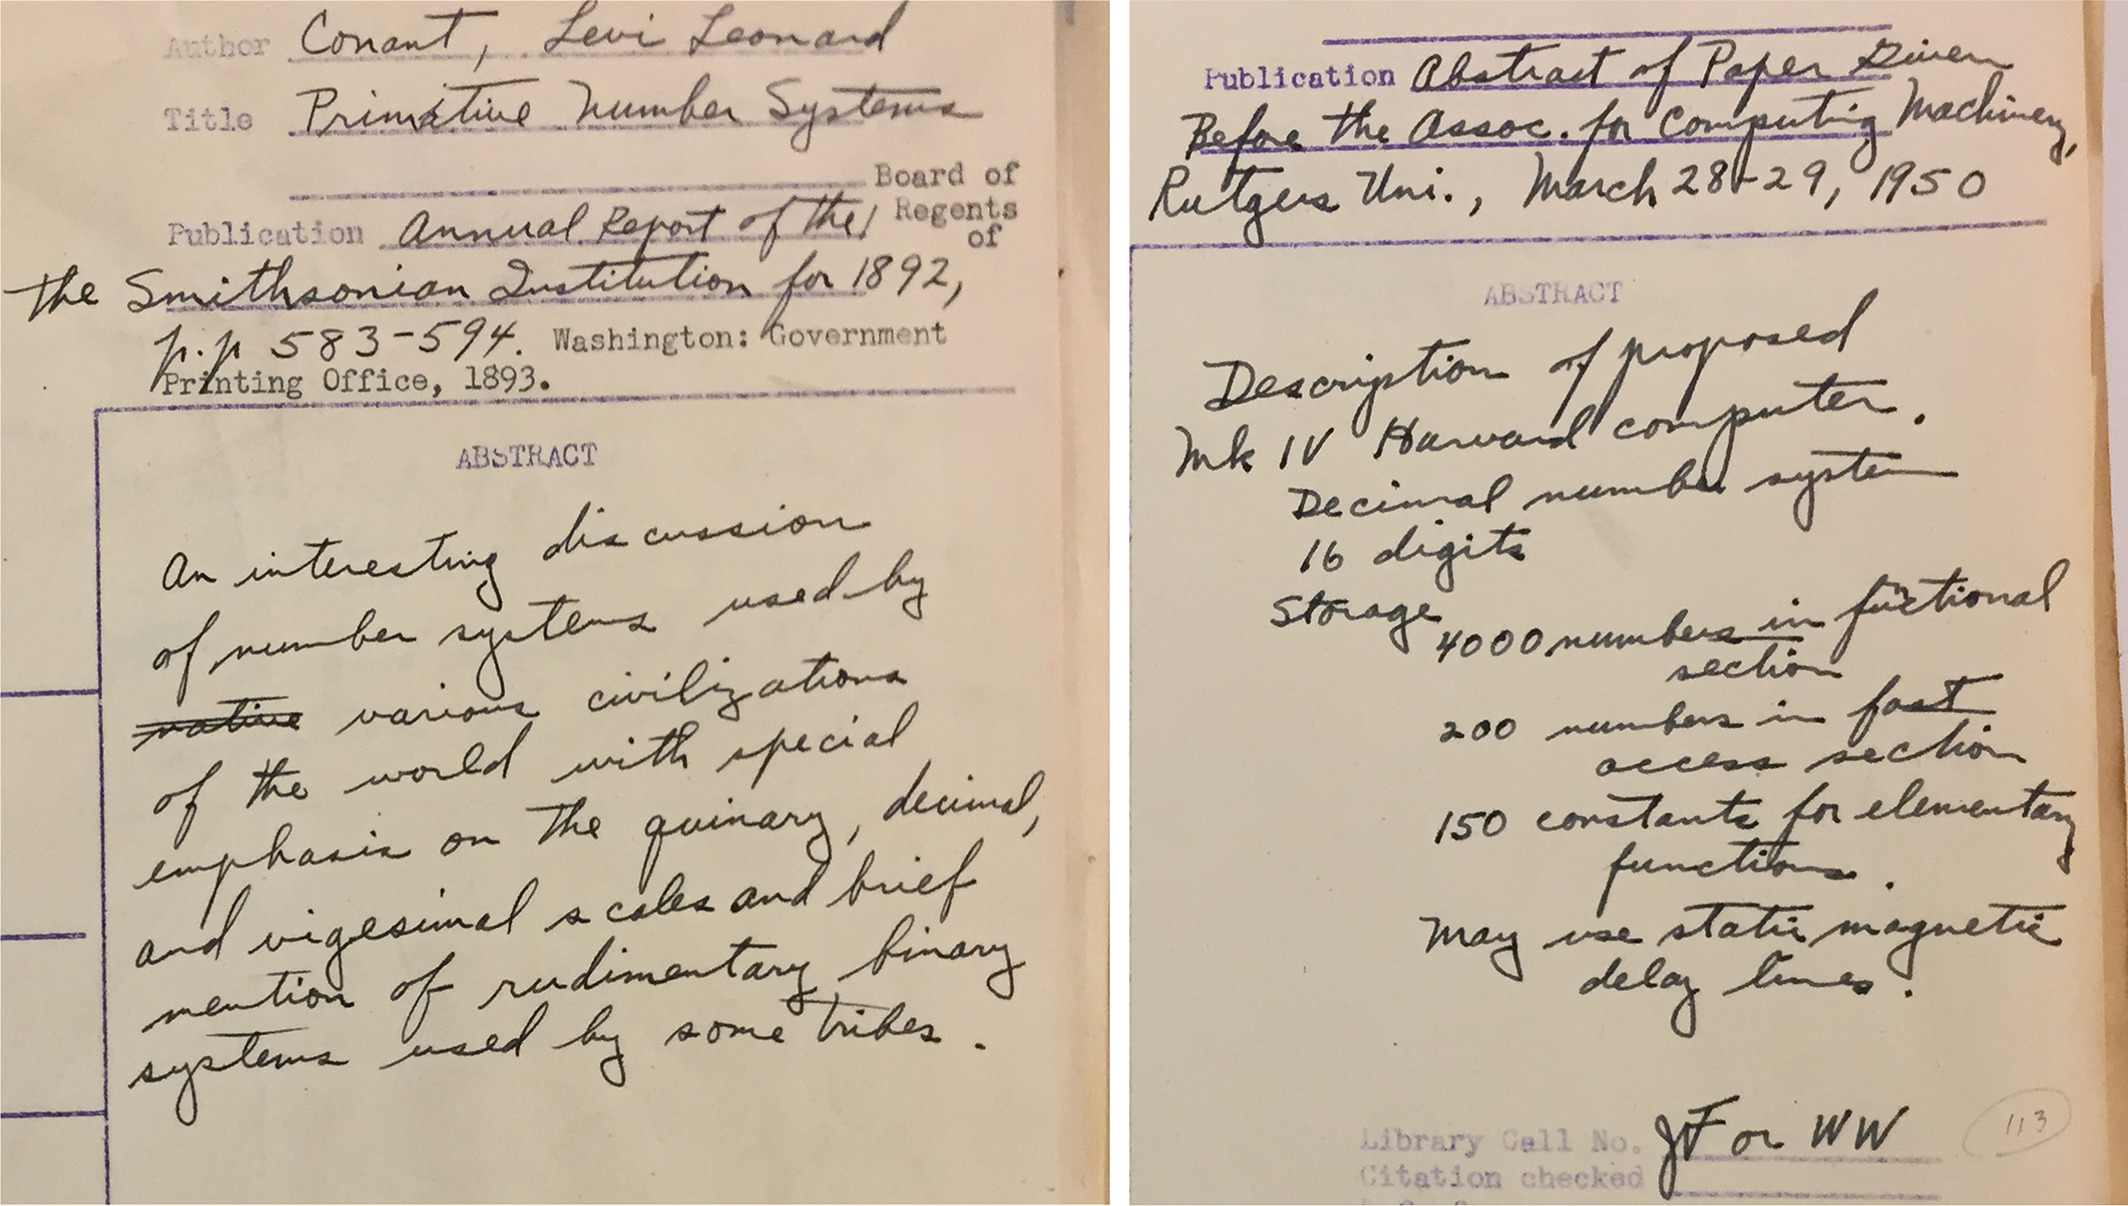 Author Conant, Levi Leonard
Title Primitive Number Systems
Board of
Regents
of
Publication Annual Report of the
the Smithsonian Institution for 1892,
p.p 583-594. Washington: Government
Printing Office, 1893.
ABSTRACT
An interesting discussion
of number systems used by
native various civilizations
of the world with special
emphasis on the quinary, decimal,
and vigesimal scales and brief
mention of rudimentary binary
systems used by some tribes.
Publication Abstract of Paper Given
Before the Assoc. for Computing Machinery,
Rutgers Uni., March 28-29, 1950
ABSTRACT
Description of proposed
Mk IV Harvard computer.
Decimal number system
16 digits
Storage
4000 numbers in fictional
section
200 numbers in fast
access section
150 constants for elementary
functions.
May use static magnetic
delay lines.
Library Call No. JF or WW
Citation checked
113